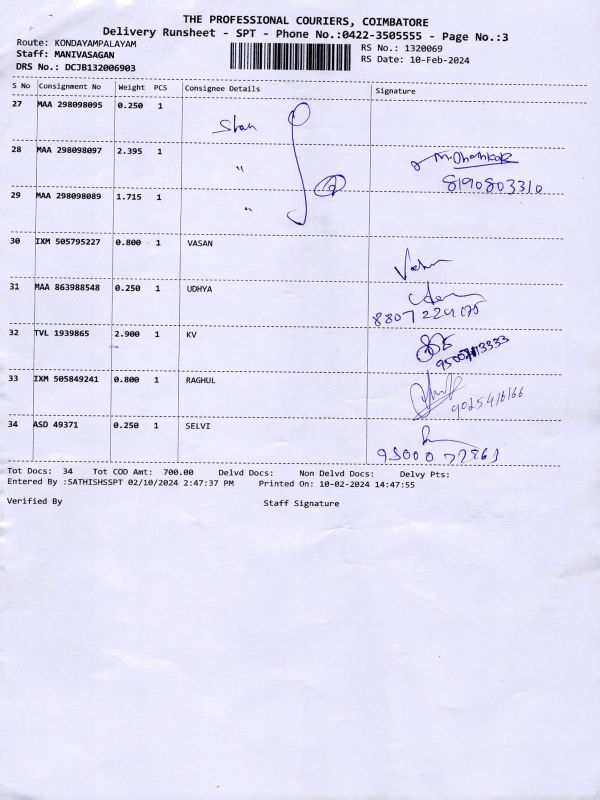 THE PROFESSIONAL COURIERS, COIMBATORE
Delivery Runsheet - SPT - Phone No.:0422-3505555 - Page No.:3
Route: KONDAYAMPALAYAM
Staff: MANIVASAGAN
DRS No.: DCJB132006903
RS No.: 1320069
RS Date: 10-Feb-2024
S No Consignment No Weight PCS Consignee Details Signature
27 MAA 298098095 0.250 1
28 MAA 298098097 2.395 1 "
8190803310
29 MAA 298098089 1.715 1 "
30 IXM 505795227 0.800 1 VASAN
31 MAA 863988548 0.250 1 UDHYA
32 TVL 1939865 2.900 1 KV
33 IXM 505849241 0.800 1 RAGHUL
34 ASD 49371 0.250 1 SELVI
Tot Docs: 34 Tot COD Amt: 700.00 Delvd Docs: Non Delvd Docs: Delvy Pts:
Entered By :SATHISHSSPT 02/10/2024 2:47:37 PM Printed On: 10-02-2024 14:47:55
Verified By Staff Signature